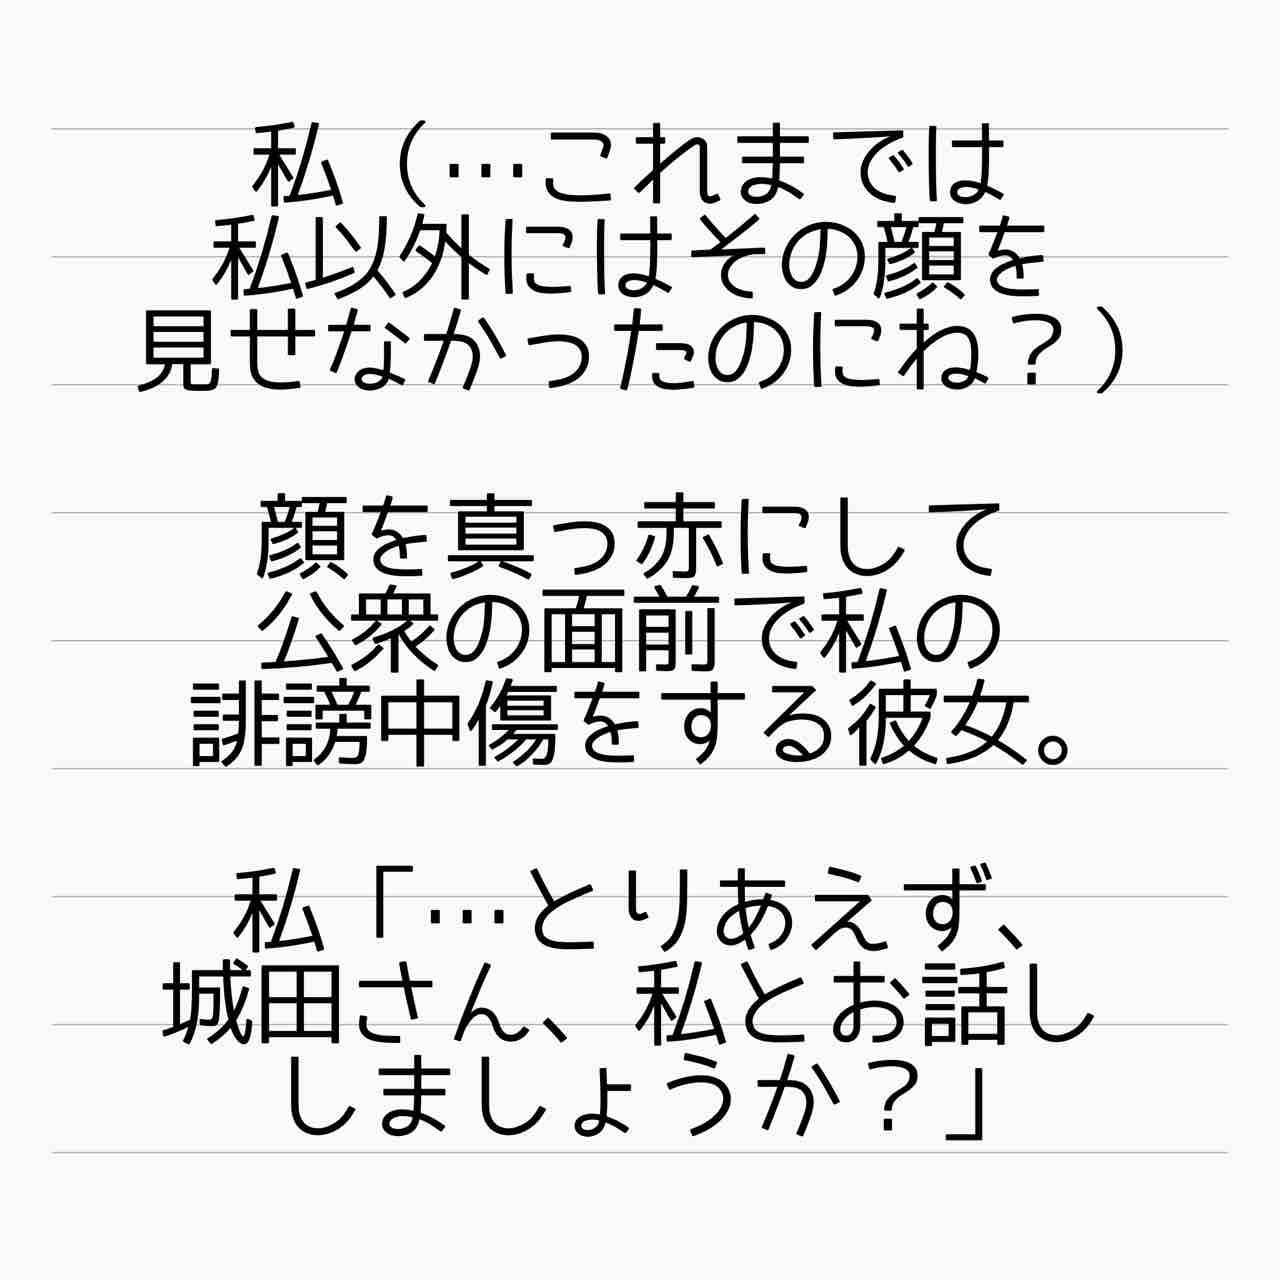 私（…これまでは
私以外にはその顔を
見せなかったのにね？）
顔を真っ赤にして
公衆の面前で私の
誹謗中傷をする彼女。
私「…とりあえず、
城田さん、私とお話し
しましょうか？」